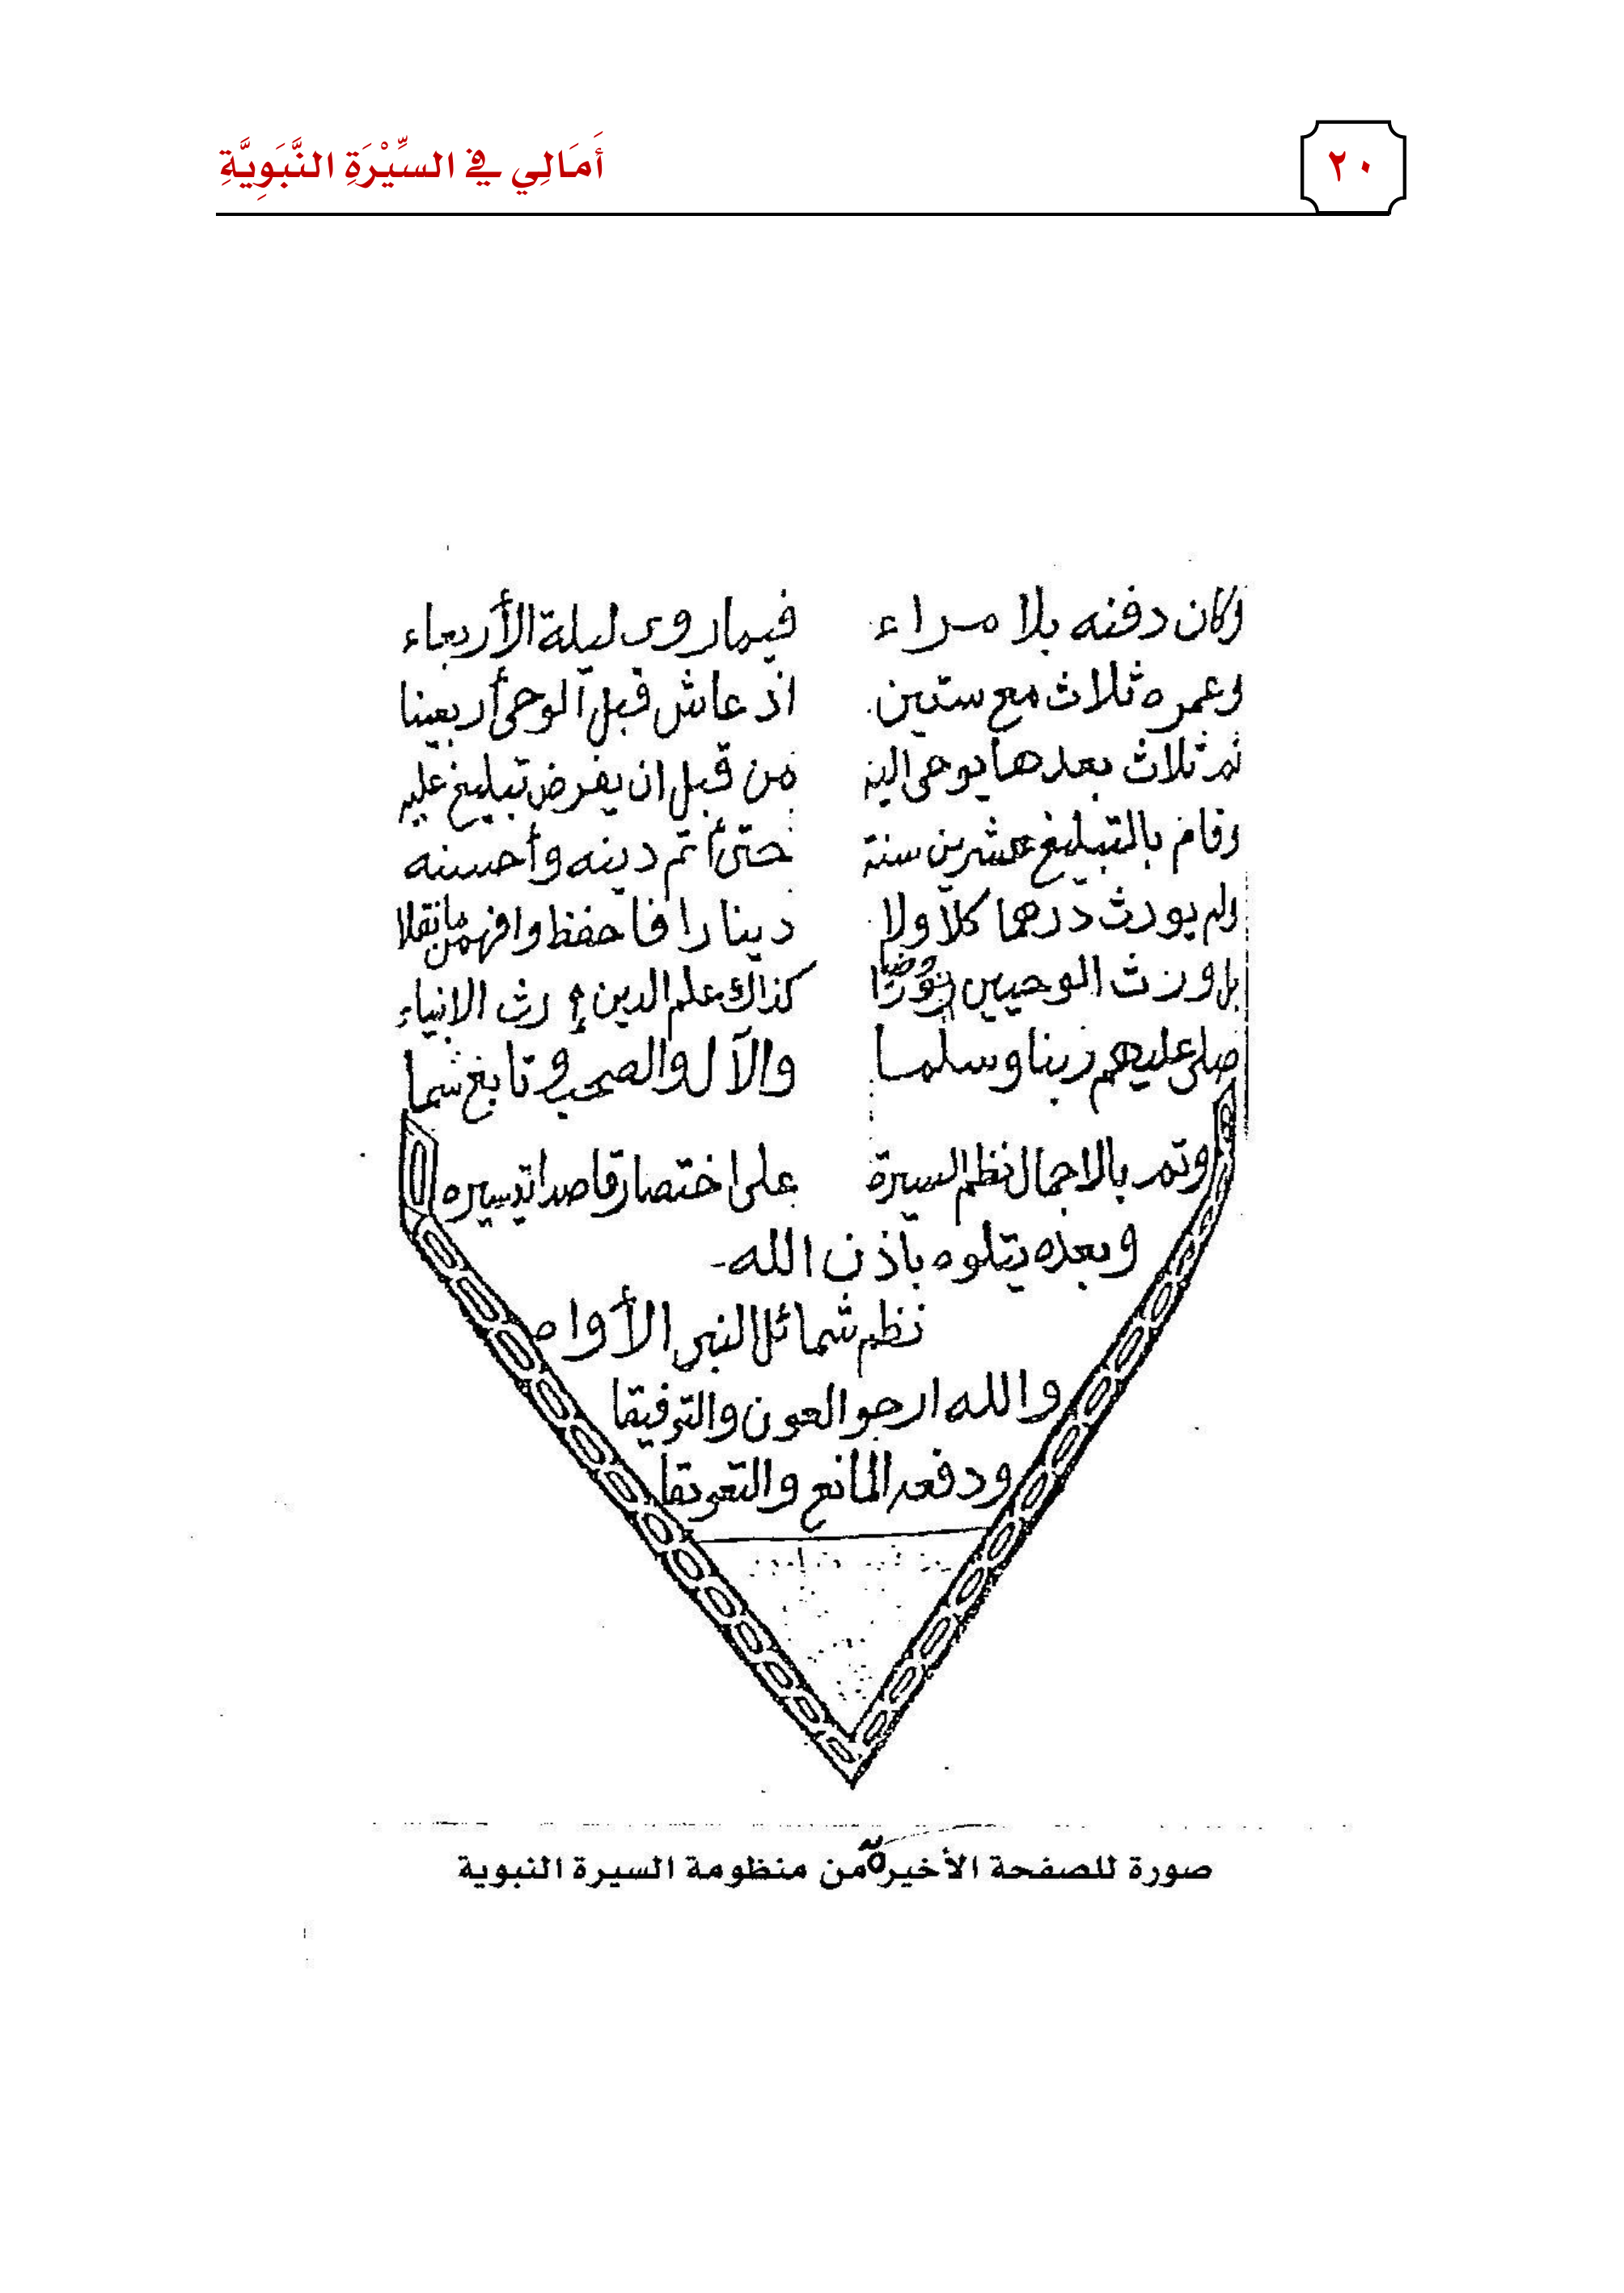 ٢٠ أَمَالِي فِي السِّيْرَةِ النَّبَوِيَّةِ
وكان دفنه بلا مراء فيما روى ليلة الأربعاء
وعمره ثلاث مع ستين اذ عاش قبل الوحي أربعينا
ثم ثلاث بعدها يوحى اليه من قبل ان يفرض تبليغ عليه
وقام بالتبليغ عشرين سنة حتى أتم دينه وأحسنه
ولم يورث درهما كلا ولا دينارا فاحفظ وافهمن ما نقلا
بل ورث الوحيين كذاك علم الدين إرث الانبياء
صلى عليهم ربنا وسلما والآل والصحب وتابع سما
وتم بالاجمال نظم السيرة على اختصار قاصدا تيسيره
وبعده يتلوه بأذن الله
نظم شمائل النبي الأواه
والله ارجو العون والتوفيقا
ودفعه المانع والتعويقا
صورة للصفحة الأخيرة من منظومة السيرة النبوية